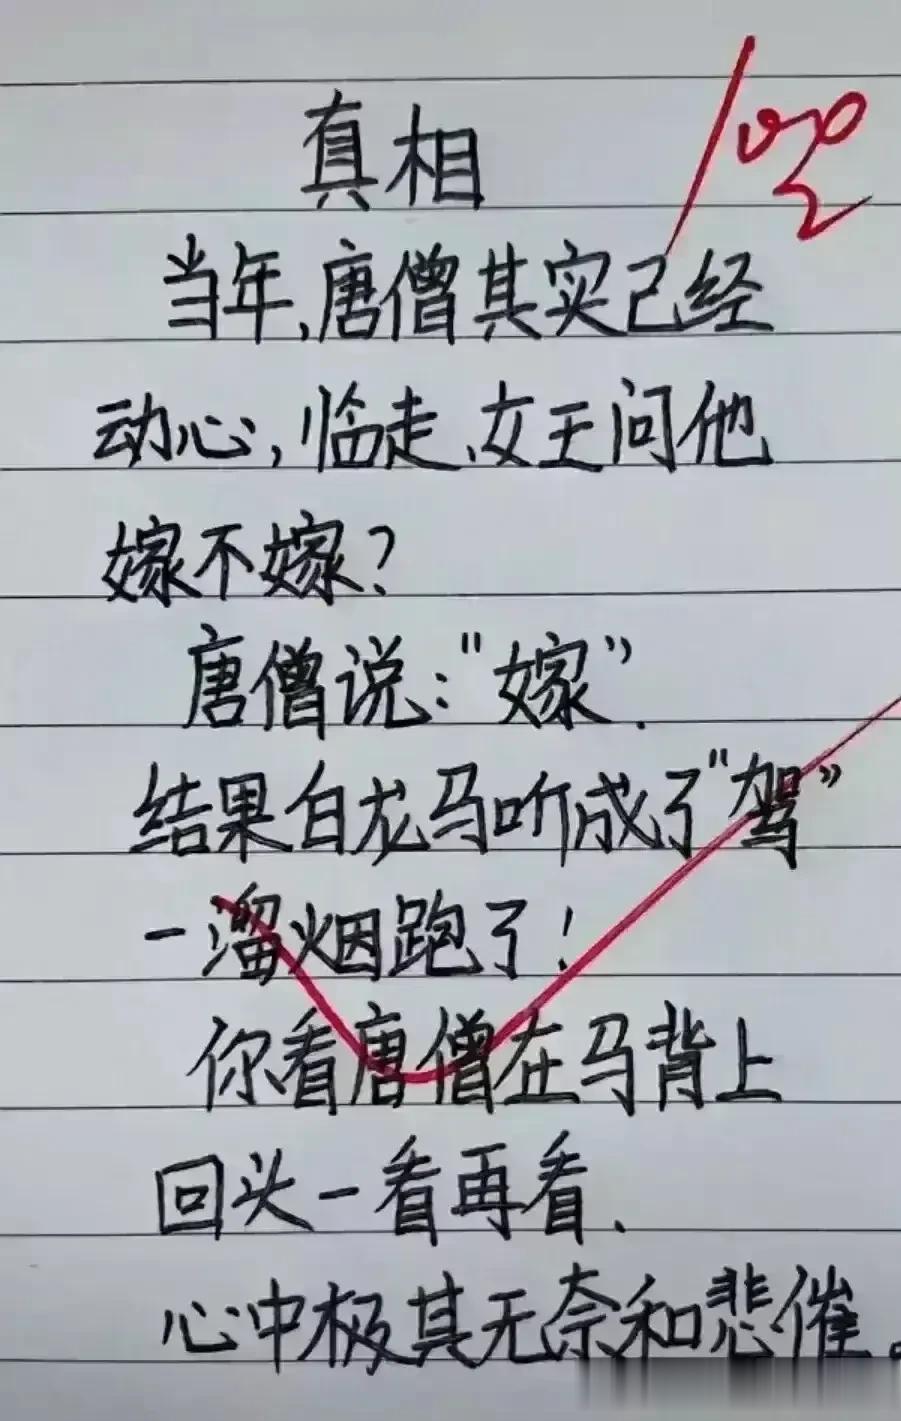 真相
当年,唐僧其实已经
动心,临走,女王问他
嫁不嫁?
唐僧说:"嫁".
结果白龙马听成了"驾"
一溜烟跑了!
你看唐僧在马背上
回头一看再看.
心中极其无奈和悲催。